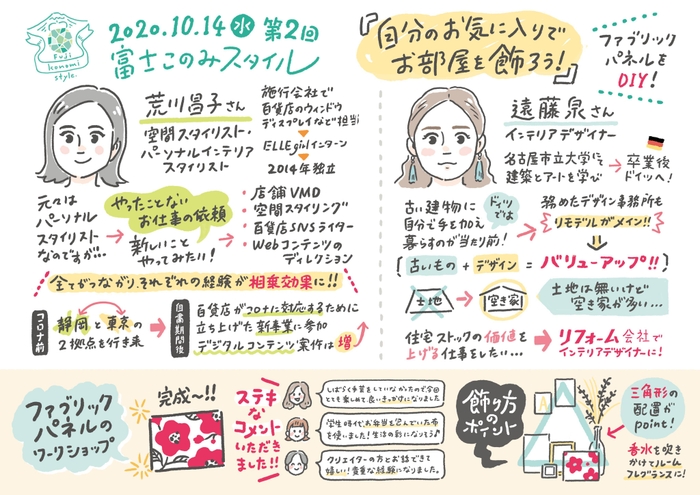 Fuji
konomi
style.
2020.10.14 水 第2回
富士このみスタイル
『自分のお気に入りで
お部屋を飾ろう!』
ファブリック
パネルを
DIY!
荒川昌子さん
空間スタイリスト・
パーソナルインテリア
スタイリスト
施行会社で
百貨店のウィンドウ
ディスプレイなど担当
ELLE girlインターン
2014年独立
元々は
パーソナル
スタイリスト
なのですが…
やったことない
お仕事の依頼
新しいこと
やってみたい!
・店舗VMD
・空間スタイリング
・百貨店SNSライター
・Webコンテンツの
ディレクション
全てがつながり、それぞれの経験が相乗効果に!!
コロナ前
静岡と東京の
2拠点を行き来
自粛期間後
百貨店がコロナに対応するために
立ち上げた新事業に参加
デジタルコンテンツ案件は増
遠藤泉さん
インテリアデザイナー
名古屋市立大学にて
建築とアートを学び
卒業後
ドイツへ!
古い建物に
自分で手を加え
暮らすのが当たり前!
ドイツ
では
務めたデザイン事務所も
リモデルがメイン!!
古いもの + デザイン = バリューアップ!!
土地
空き家
土地は無いけど
空き家が多い…
住宅ストックの価値を
上げる仕事をしたい…
リフォーム会社で
インテリアデザイナーに!
ファブリック
パネルの
ワークショップ
完成〜!!
ステキ
な
コメント
いただき
ました!!
しばらく手芸をしていなかったので今回
とても楽しめて良いきっかけになりました
学生時代お弁当を包んでいた布
を使いました!生活の彩りになりそう♪
クリエイターの方とお話できて
嬉しい!貴重な経験になりました。
飾り方
の
ポイント
三角形の
配置が
point!
香水を吹き
かけてルーム
フレグランスに!